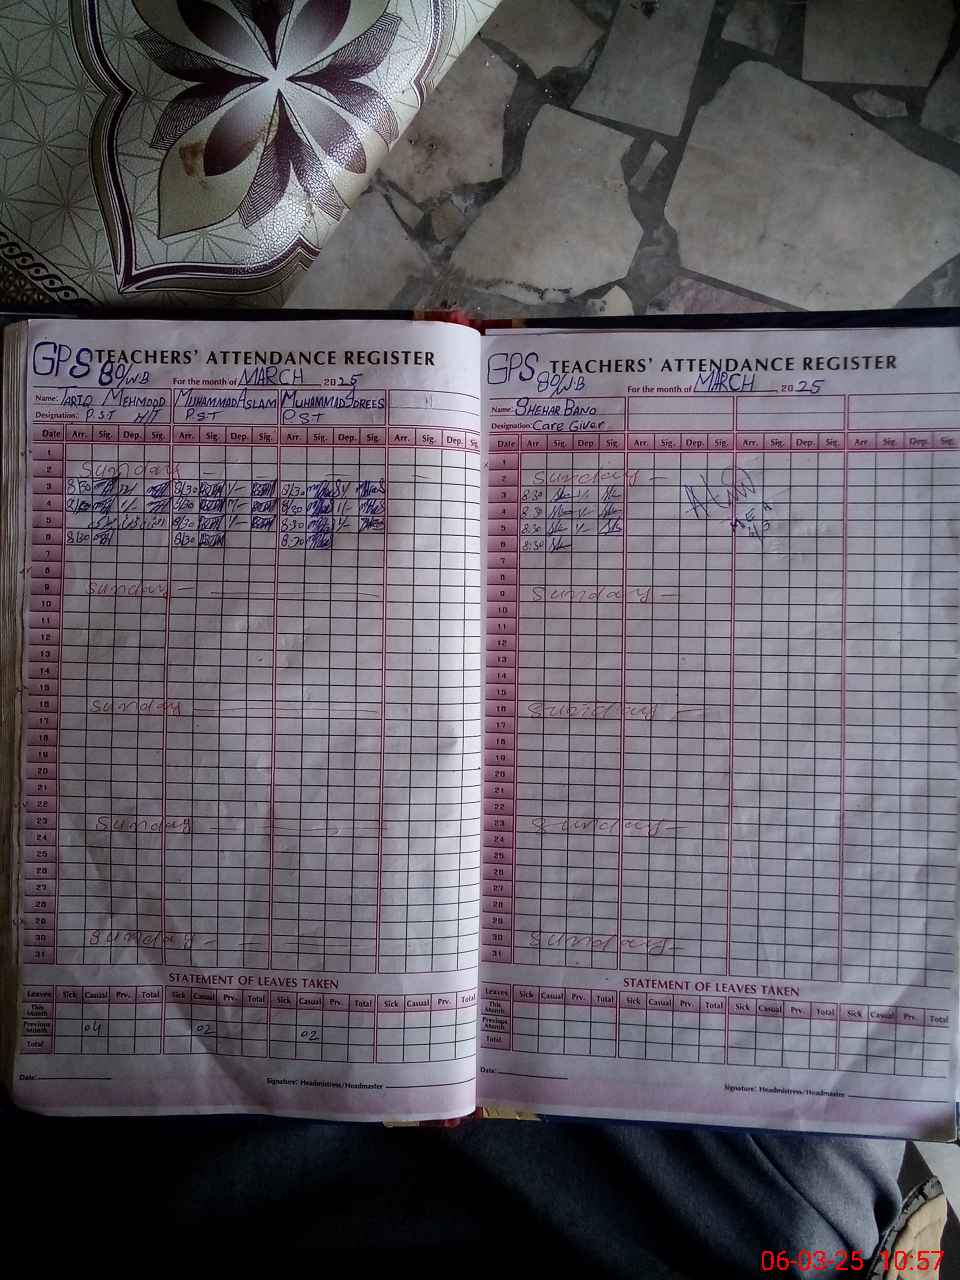 GPS TEACHERS' ATTENDANCE REGISTER
80/W.B For the month of MARCH 2025
Name: TARIQ MEHMOOD MUHAMMAD ASLAM MUHAMMAD IDREES
Designation: P.S.T H/T P.S.T P.S.T
Date Arr. Sig. Dep. Sig. Arr. Sig. Dep. Sig. Arr. Sig. Dep. Sig. Arr. Sig. Dep. Sig.
1
2 Sunday
3 8/30 8/30 8/30
4 8/30 8/30 8/30
5 8/30 8/30
6 8/30 8/30 8/30
7
8
9 Sunday
10
11
12
13
14
15
16 Sunday
17
18
19
20
21
22
23 Sunday
24
25
26
27
28
29
30 Sunday
31
STATEMENT OF LEAVES TAKEN
Leaves Sick Casual Prv. Total Sick Casual Prv. Total Sick Casual Prv. Total Sick Casual Prv. Total
This Month
Previous Month 04 02 02
Total
Date:
Signature: Headmistress/Headmaster
GPS TEACHERS' ATTENDANCE REGISTER
80/W.B For the month of MARCH 2025
Name: SHEHAR BANO
Designation: Care Giver
Date Arr. Sig. Dep. Sig. Arr. Sig. Dep. Sig. Arr. Sig. Dep. Sig. Arr. Sig. Dep. Sig.
1
2 Sunday
3 8:30
4 8:30
5 8:30
6 8:30
7
8
9 Sunday
10
11
12
13
14
15
16 Sunday
17
18
19
20
21
22
23 Sunday
24
25
26
27
28
29
30 Sunday
31
STATEMENT OF LEAVES TAKEN
Leaves Sick Casual Prv. Total Sick Casual Prv. Total Sick Casual Prv. Total Sick Casual Prv. Total
This Month
Previous Month
Total
Date:
Signature: Headmistress/Headmaster
06-03-25 10:57